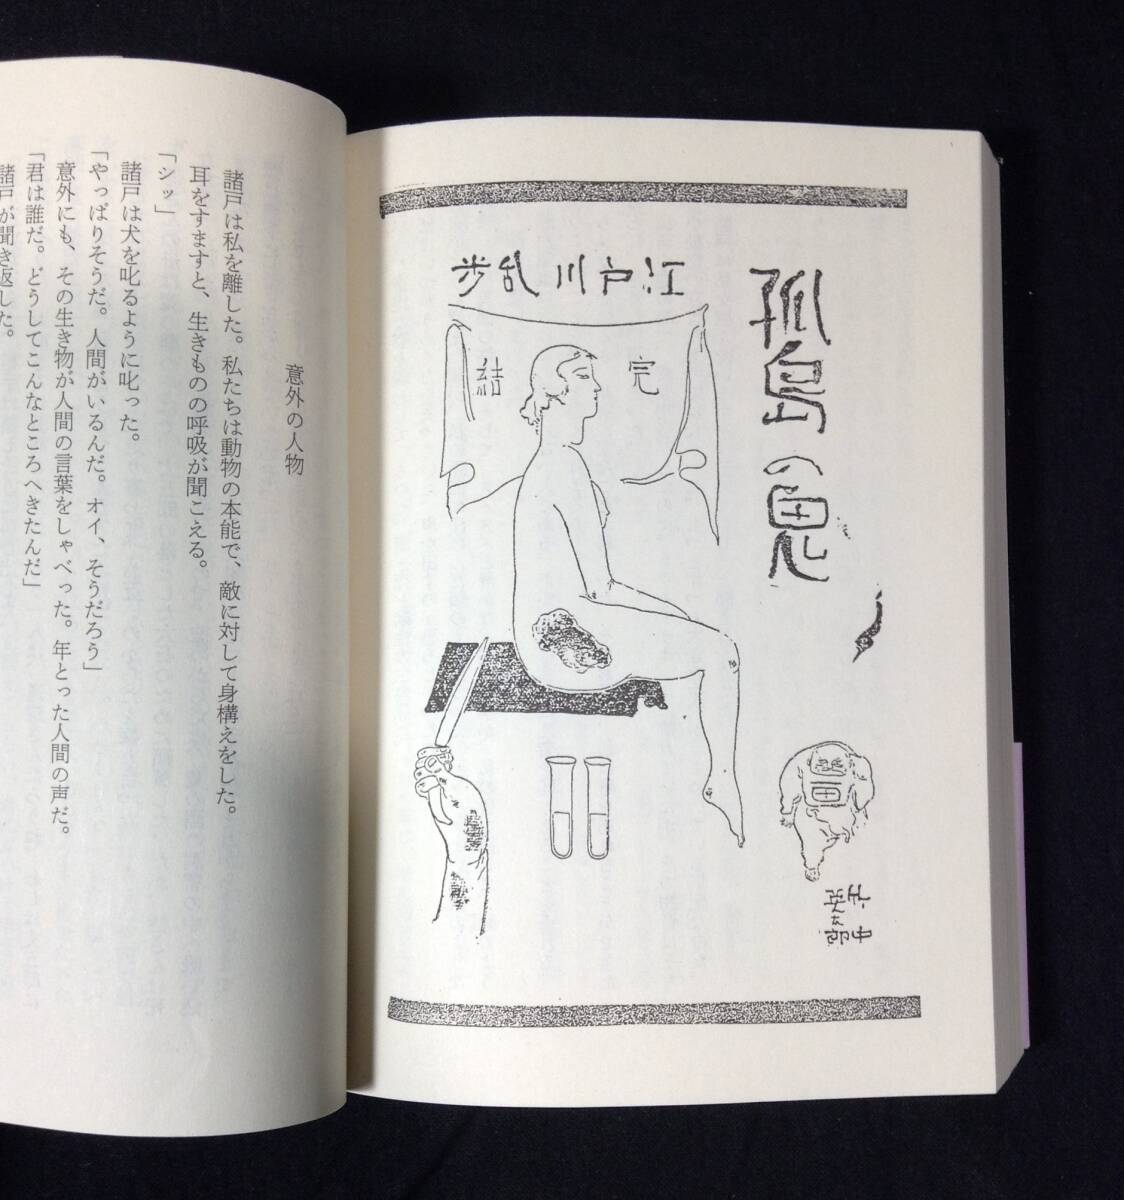 孤島の鬼
江戸川乱歩
完結
画
竹中英太郎
意外の人物
諸戸は私を離した。私たちは動物の本能で、敵に対して身構えをした。
耳をすますと、生きものの呼吸が聞こえる。
「シッ」
諸戸は犬を叱るように叱った。
「やっぱりそうだ。人間がいるんだ。オイ、そうだろう」
意外にも、その生き物が人間の言葉をしゃべった。年とった人間の声だ。
「君は誰だ。どうしてこんなところへきたんだ」
諸戸が聞き返した。